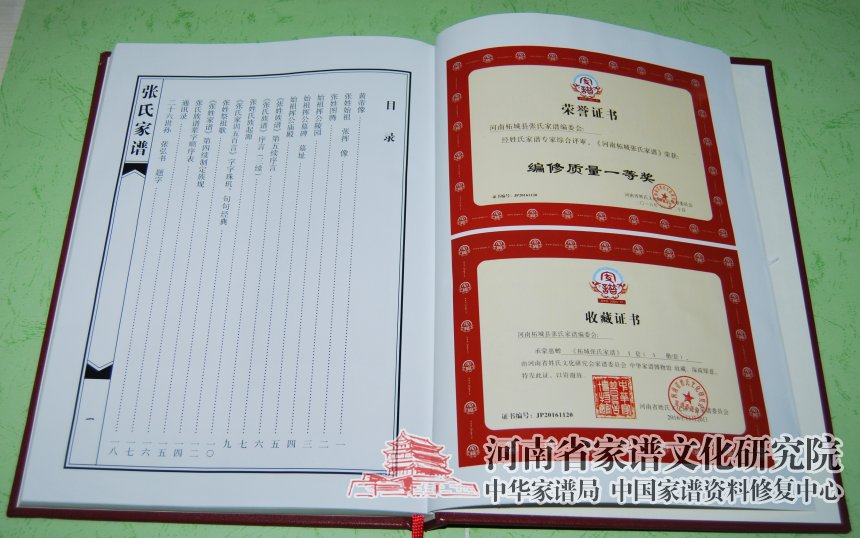 张氏家谱
一
目录
黄帝像 一
张姓始祖 张挥 像 二
张姓图腾 三
始祖挥公陵园 四
始祖挥公墓碑 墓址 五
始祖挥公庙殿 六
《张姓族谱》第五续序言 七
《张氏族谱》序言(一、续) 九
张姓氏族起源 一〇
《张氏家训五百言》字字珠玑,句句经典 一二
张姓祭祖歌 一四
《张姓家谱》第四续制定族规 一五
张氏族谱辈字顺序表 一六
通讯录 一七
二十六世孙 张弘书 题字 一八
家谱
荣誉证书
河南柘城县张氏家谱编委会:
经姓氏家谱专家综合评审,《河南柘城张氏家谱》荣获:
编修质量一等奖
证书编号:JP20161120
家谱
收藏证书
河南柘城县张氏家谱编委会:
承蒙惠赠 《柘城张氏家谱》 1 套( 1 册/盒),
由河南省姓氏文化研究会家谱委员会 中华家谱博物馆 收藏,深致绿意。
特发此证,以资谢忱。
河南省姓氏文化研究会家谱委员会
证书编号:JP20161120
河南省家谱文化研究院
中华家谱局 中国家谱资料修复中心